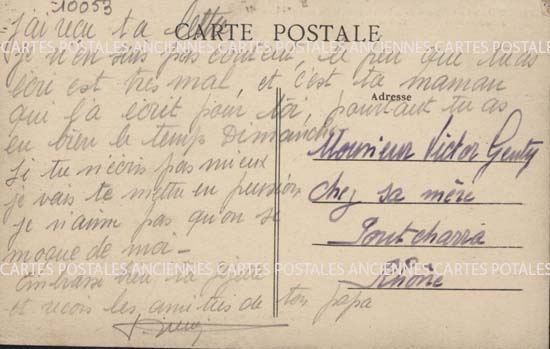 10053
CARTE POSTALE
j'ai reçu ta lettre
je n'en suis pas content, le peu que tu as
écri est très mal, et c'est ta maman
qui l'a écrit pour toi, pourtant tu as
eu bien le temps Dimanche
Si tu n'écris pas mieux
je vais te mettre en pension
je n'aime pas qu'on se
moque de moi -
embrasse bien ta
et reçois les amitiés de ton papa
Adresse
Monsieur Victor Genty
chez sa mère
Pontcharra
Rhône
CARTES POSTALES ANCIENNES CARTES POSTALES ANCIENNES CARTES POSTALES
CARTES POSTALES ANCIENNES CARTES POSTALES ANCIENNES CARTES POSTALES